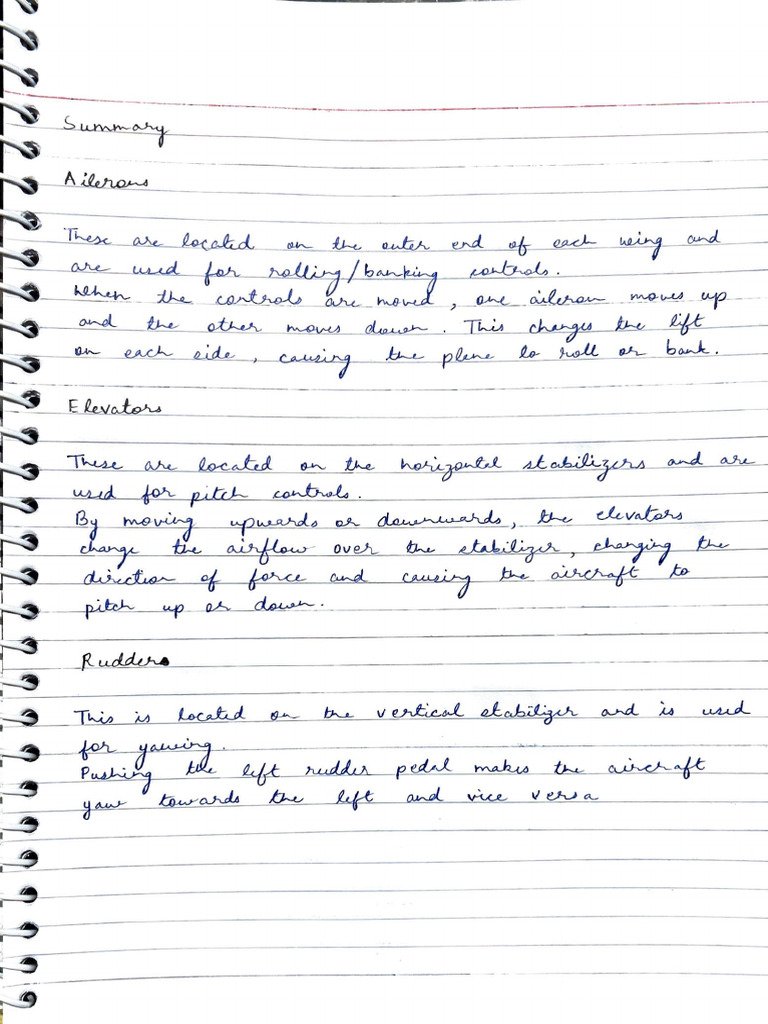 Summary
Ailerons
These are located on the outer end of each wing and
are used for rolling/banking controls.
When the controls are moved, one aileron moves up
and the other moves down. This changes the lift
on each side, causing the plane to roll or bank.
Elevators
These are located on the horizontal stabilizers and are
used for pitch controls.
By moving upwards or downwards, the elevators
change the airflow over the stabilizer, changing the
direction of force and causing the aircraft to
pitch up or down.
Rudder
This is located on the vertical stabilizer and is used
for yawing.
Pushing the left rudder pedal makes the aircraft
yaw towards the left and vice versa